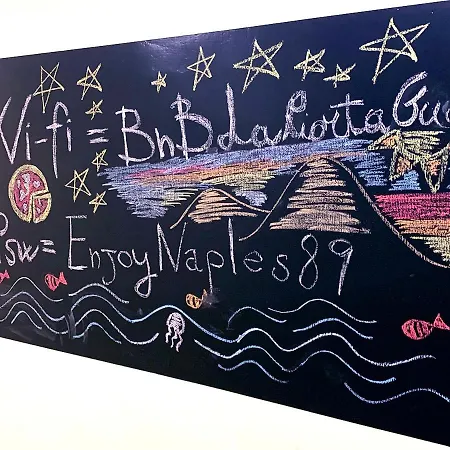 Wi-fi = BnB La Porta Gue
Psw = EnjoyNaples89